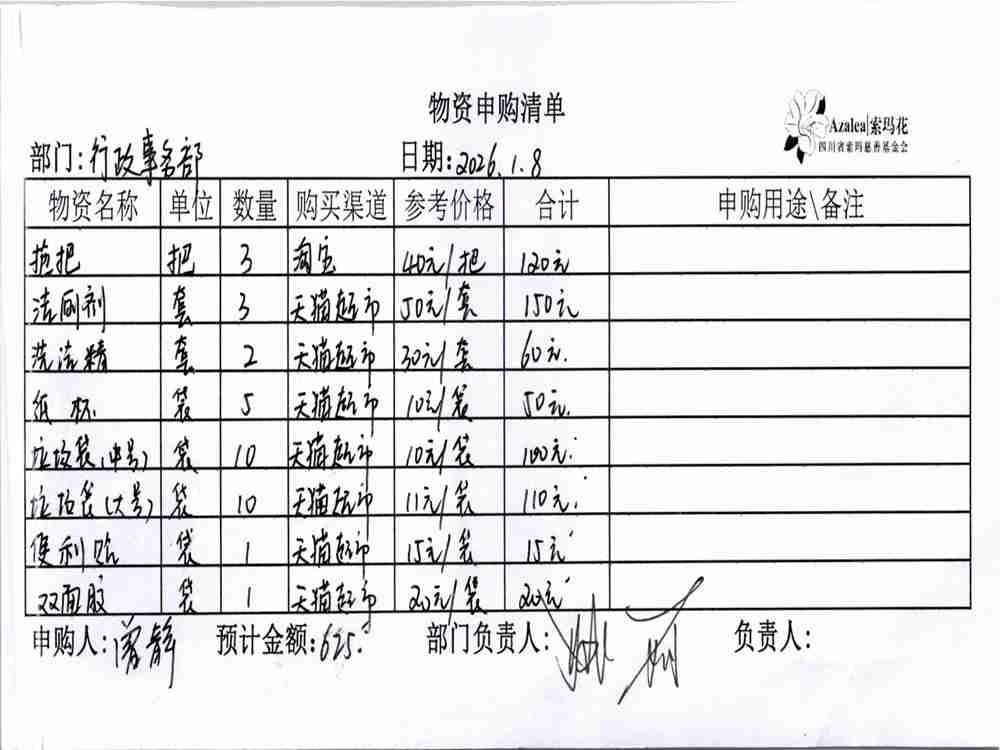 物资申购清单
Azalea|索玛花
四川省索玛慈善基金会
部门:行政事务部 日期:2026.1.8
物资名称 单位 数量 购买渠道 参考价格 合计 申购用途\备注
拖把 把 3 淘宝 40元/把 120元
洁厕剂 套 3 天猫超市 50元/套 150元
洗洁精 套 2 天猫超市 30元/套 60元.
纸杯 袋 5 天猫超市 10元/袋 50元.
垃圾袋(中号) 袋 10 天猫超市 10元/袋 100元.
垃圾袋(大号) 袋 10 天猫超市 11元/袋 110元.
便利贴 袋 1 天猫超市 15元/袋 15元
双面胶 袋 1 天猫超市 20元/袋 20元
申购人:曾静 预计金额:625. 部门负责人: 负责人: